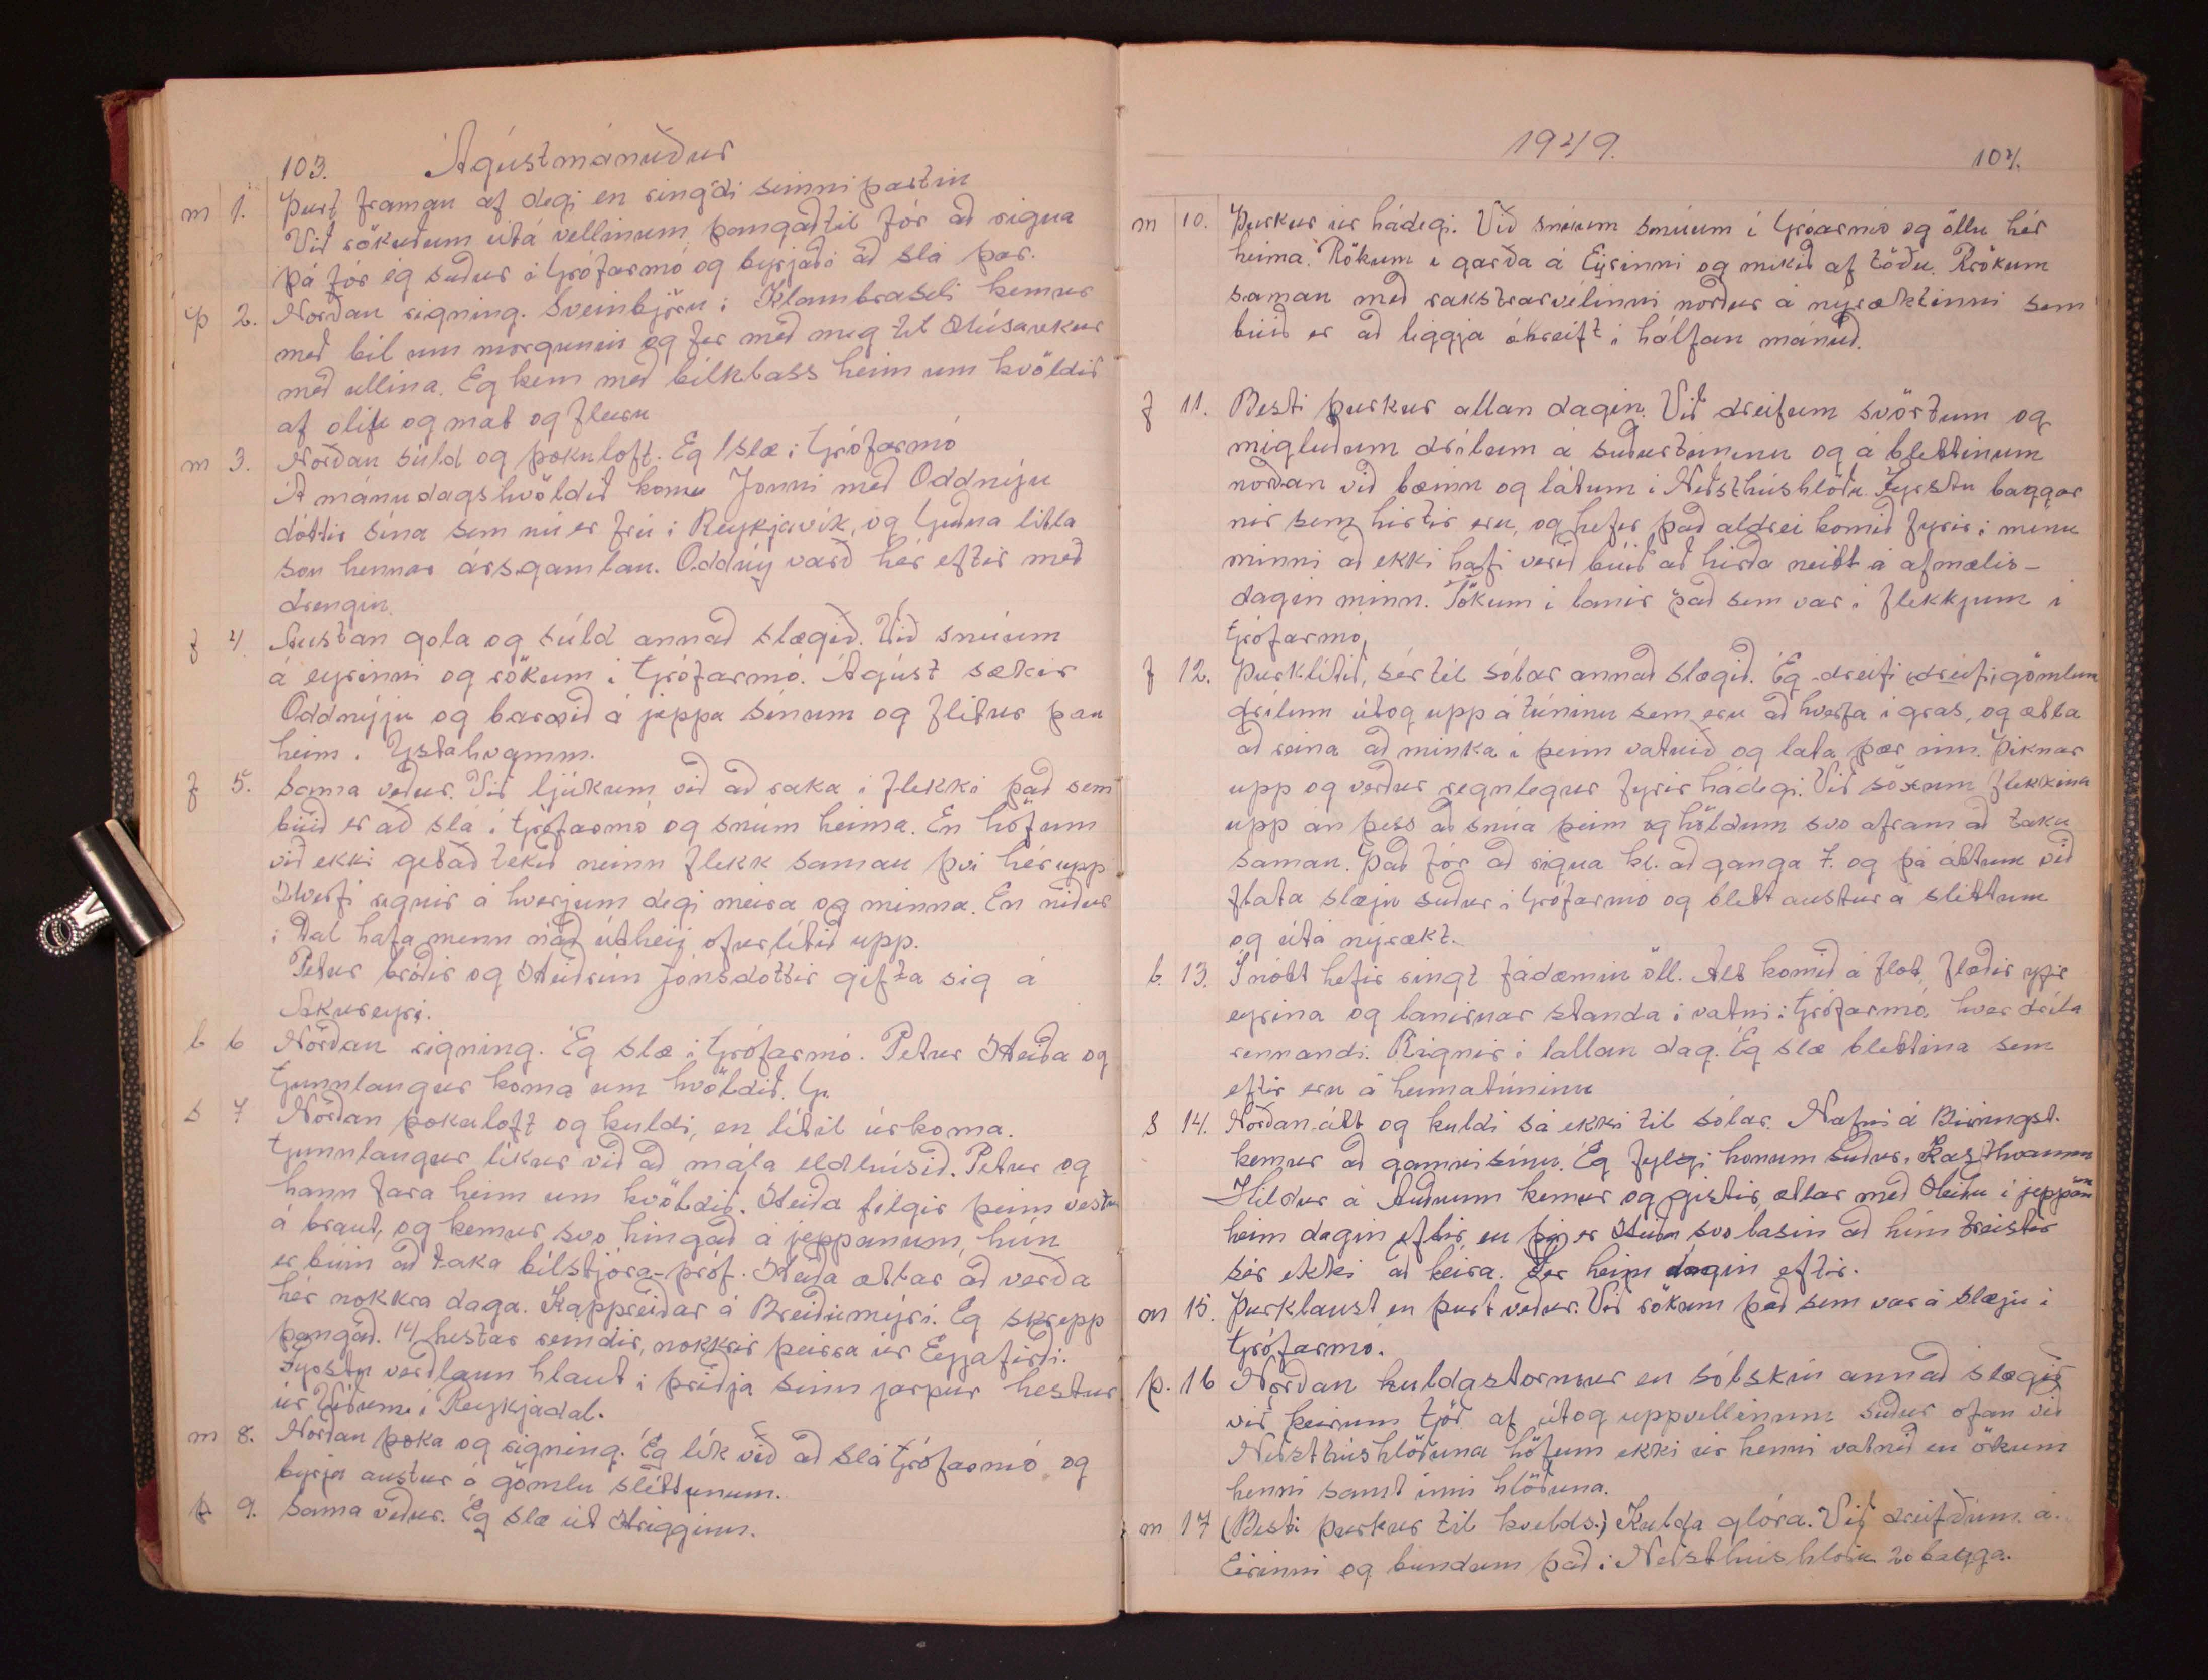 103. Ágústmánuður
m 1. Þurt framan af degi en ringdi seinnipartin
Við rökuðum útá vellinum þangaðtil fór að rigna
þá fór ég suður í Grófarmó og byrjaði að slá þar.
þ 2. Norðan rigning. Sveinbjörn í Klambraseli kemur
með bíl um morgunin og fer með mig til Húsavíkur
með ullina. Eg kem með bílhlass heim um kvöldið
af olíu og mat og fleiru
m 3. Norðan súld og þokuloft. Eg slæ í Grófarmó
Á mánudagskvöldið komu Jonni með Oddnýju
dóttir sína sem nú er frú í Reykjavík, og Guðna litla
son hennar ársgamlan. Oddný varð hér eftir með
drengin.
f 4. Austan gola og súld annað slagið. Við snúum
á eyrinni og rökum í Grófarmó. Ágúst sækir
Oddnýju og barnið á jeppa sínum og flitur þau
heim í Ystahvamm.
f 5. Sama veður. Við ljúkum við að raka í flekki það sem
búið er að slá í Grófarmó og snúm heima. En höfum
við ekki getað tekið neinn flekk saman því hér upp
Hverfi rignir á hverjum degi meira og minna. En niður
í Dal hafa menn náð útheij ofurlítið upp.
Petur bróðir og Heiðrún Jónsdottir gifta sig á
Akureyri.
l 6 Norðan rigning. Ég slæ í Grófarmó. Petur Heiða og
Gunnlaugur koma um kvöldið. G.
s 7 Norðan þokuloft og kuldi, en lítil úrkoma.
Gunnlaugur líkur við að mála eldhúsið. Petur og
hann fara heim um kvöldið. Heiða filgir þeim vestur
á braut, og kemur svo hingað á jeppanum, hún
er búin að taka bílstjóra-próf. Heiða ætlar að verða
hér nokkra daga. Kappreiðar á Breiðumýri. Eg skrepp
þangað. 14 hestar reindir, nokkrir þeirra úr Eyjafirði.
Fyrstu verðlaun hlaut í þriðja sinn jarpur hestur
úr Víðum í Reykjadal.
m 8. Norðan þoka og rigning. Ég lík við að slá Grófarmó og
byrja austur á gömlu sléttunum.
þ 9. Sama veður. Ég slæ út Hrigginn.
1949. 104.
m 10. Þurkur úr hádegi. Við snúum snúum í Gróarmó og öllu hér
heima. Rökum í garða á Eyrinni og mikið af töðu. Rrökum
saman með rakstrarvélinni norður á nýræktinni sem
búið er að liggja óhreift í hálfan mánuð.
f 11. Besti þurkur allan dagin. Við dreifum svörtum og
migluðum drílum á suðurtúninu og á blettinum
norðan við bæinn og látum í Neðsthúshlöðu. Fyrstu baggar
nir sem hirtir eru, og hefer það aldrei komið fyrir í minu
minni að ekki hafi verið búið að hirða neitt á afmælis-
dagin minn. Tökum í lanir það sem var í flekkjum í
Grófarmó,
f 12. Þurklítið, sér til sólar annað slagið. Ég dreifi dreifi, gömlum
drílum útog upp á túninu sem eru að hverfa í gras, og ætla
að reina að minka í þeim vatnið og lata þær inn. Þiknar
upp og verður regnlegur fyrir hádegi. Við söxum flekkina
upp án þess að snúa þeim og höldum svo afram að taka
saman. Það fór að rigna kl. að ganga 7. og þá áttum við
flata slæju suður í Grófarmó og blett austur á slettum
og útá nýrækt.
l. 13. Í nótt hefir ringt fádæmin öll. Alt komið á flot, flæðir yfir
eyrina og lanirnar standa í vatni í Grófarmó, hver dríla
rennandi. Rignir í lallan dag. Ég slæ blettina sem
eftir eru á heimatúninu
s 14. Norðan átt og kuldi sá ekki til sólar. Nafni á Birningst.
kemur að gamni sínu. Ég fylgi honum suður í Kasthvamm
Hildur á Auðnum kemur og gistir, ætlar með Heiðu í jeppan
heim dagin eftir, en þá er Heiða svo lasin að hún treistir
sér ekki að keira. Fer heim dagin eftir.
m 15. Þurklaust en þurt veður. Við rökum það sem var á slæju í
Grófarmó.
þ. 16 Norðan kuldastormur en sólskin annað slagið
við keirum Gjöð af útog uppvellinum suður ofan við
Neðsthúshlöðuna höfum ekki úr henni vatnið en ökum
henni samt inni hlöðuna.
m 17 (Besti þurkur til kvelds.) Kulda glóra. Við dreifðum á
Eirinni og bundum það í Neðsthúshlöðu 20 bagga.